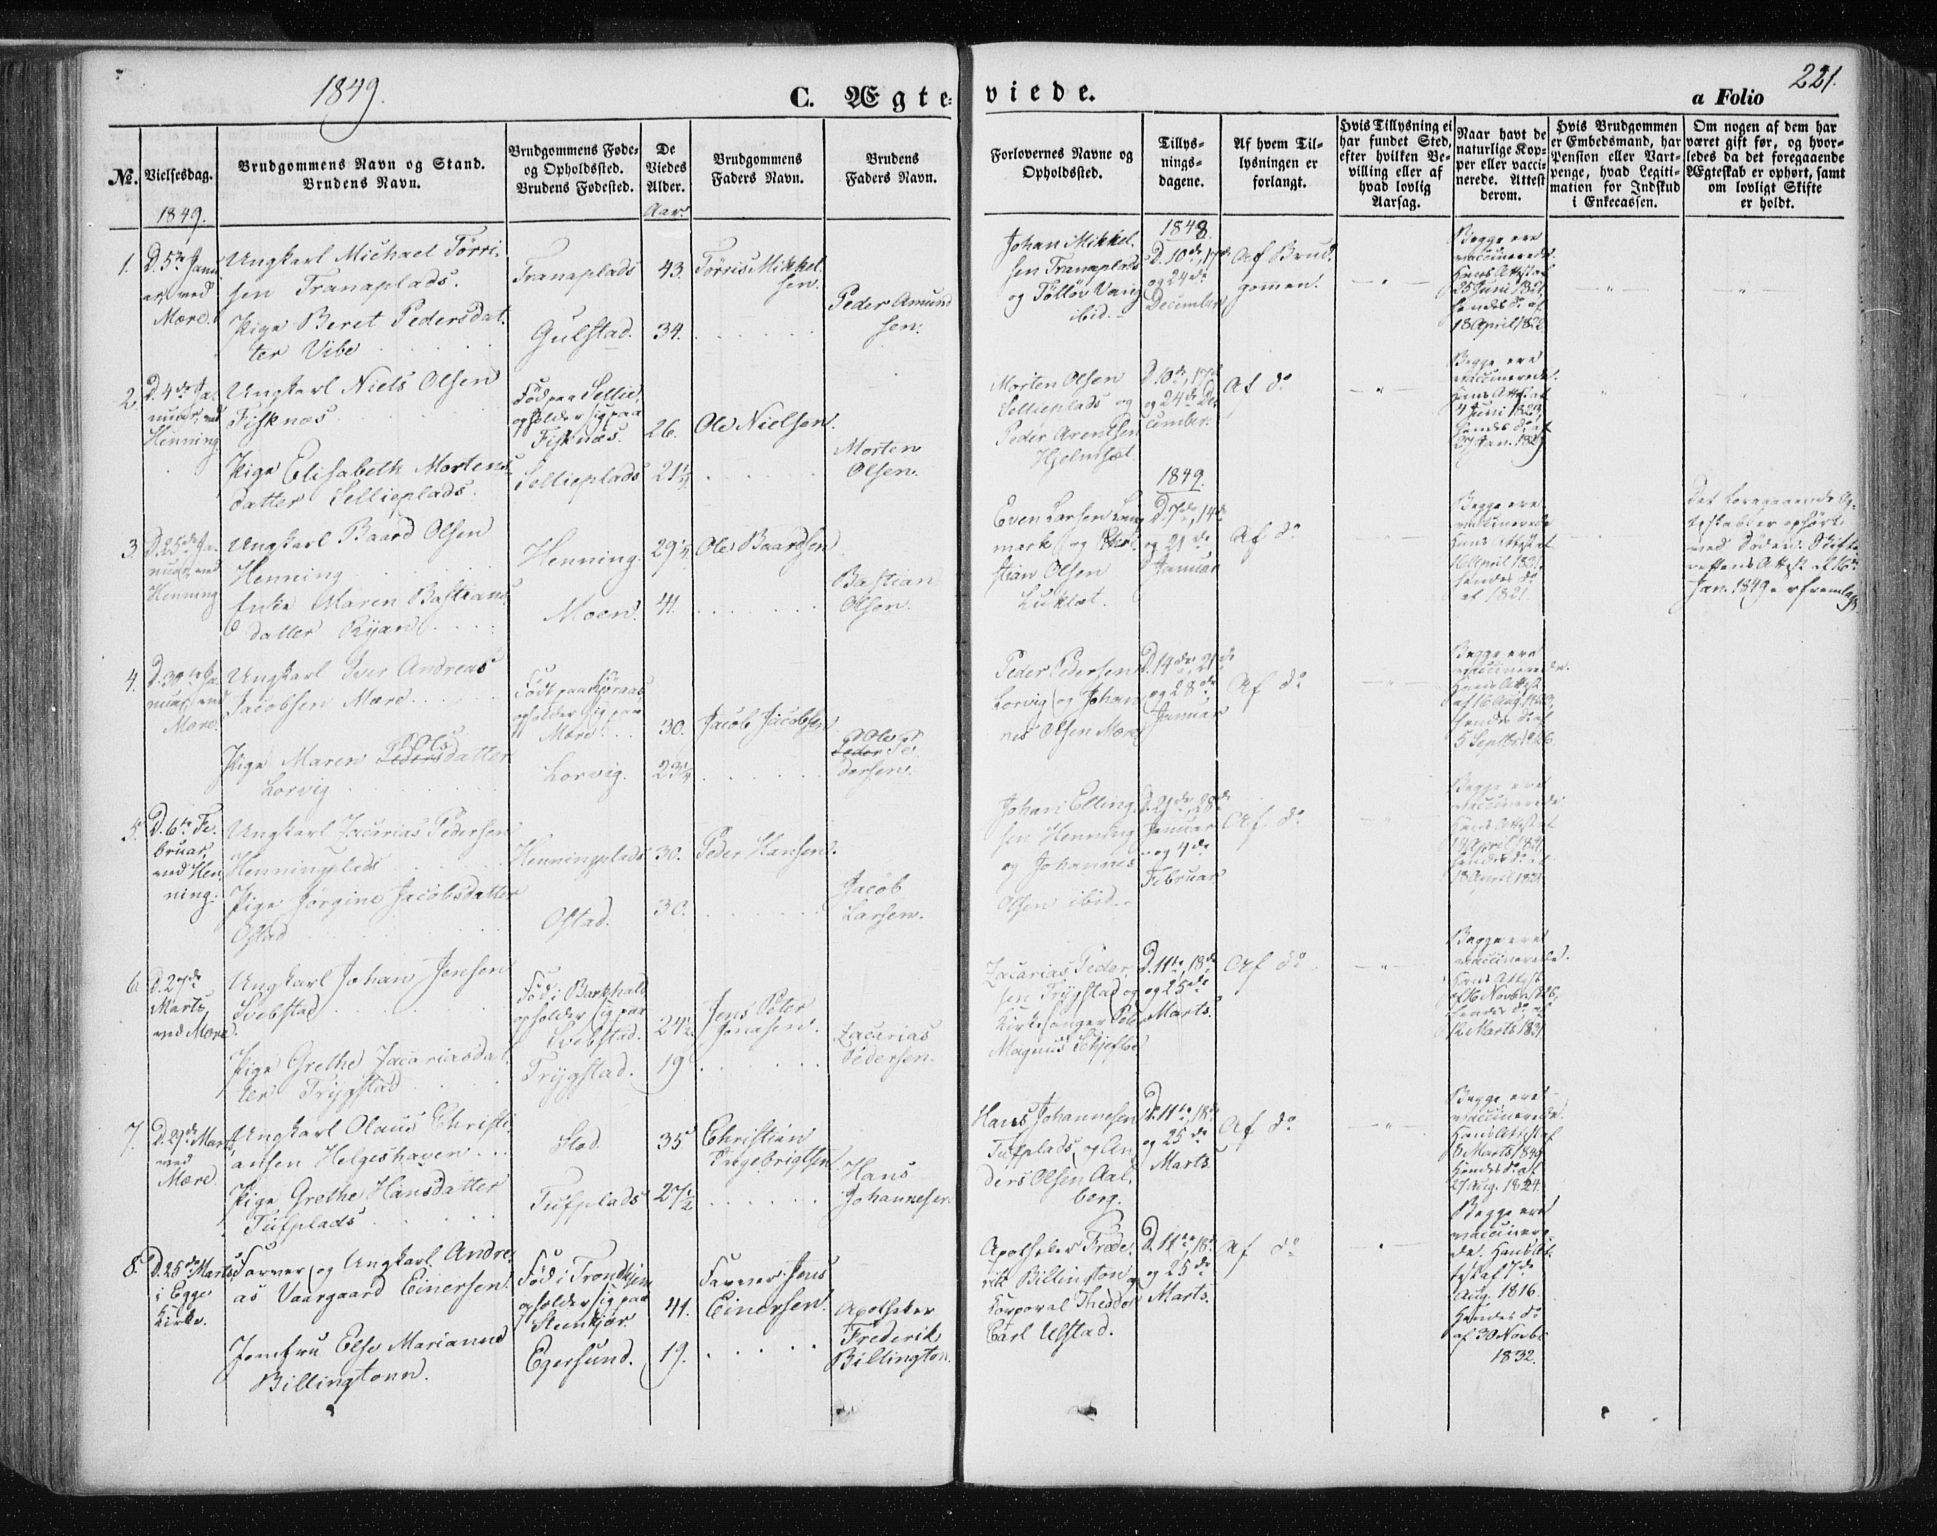 1849.
C. Ægteviede.
221.
a Folio
No.
Vielsesdag.
Brudgommens Navn og Stand.
Brudens Navn.
Brudgommens Føde-
og Opholdssted.
Brudens Fødested.
De
Viedes
Alder.
Brudgommens
Faders Navn.
Brudens
Faders Navn.
Forlovernes Navne og
Opholdssted.
Tillys-
nings-
dagene.
Af hvem Til-
lysningen er
forlangt.
Hvis Tillysning ei
har fundet Sted,
efter hvilken Be-
villing eller af
hvad lovlig
Aarsag.
Naar havt de
naturlige Kop-
per eller vacci-
nerede. Attest
derom.
Hvis Brudgommen
er Embedsmand, har
Pension eller Vart-
penge, hvad Legiti-
mation for Indskud
i Enkecassen.
Om nogen af dem har
været gift før, og hvor-
ledes da det foregaaende
Ægteskab er ophørt, samt
om lovligt Skifte
er holdt.
1849.
Aar.
1848.
1.
D. 5te Janu-
ar, ved
Mære.
Ungkarl Michael Tørri-
sen Tranaplads.
Pige Beret Pedersdat-
ter Vibe
Tranaplads
Gulstad.
43.
34.
Tørris Mikkel-
sen.
Peder Amund
sen.
Johan Mikkel-
sen Tranaplads
og Tølløv Vang
ibid.
D. 10de, 17de
og 24de
December
Af Brud-
gommen.
Begge ere
vaccinerede.
Hans Attest af
25 Juni 1821
hendes do af
18 April 1822
2.
D. 4de Ja-
nuar, ved
Henning
Ungkarl Niels Olsen
Fisknæs
Pige Elisabeth Mortens-
datter Sellieplads.
Fød paa Sellie,
opholder sig paa
Fisknæs.
Sellieplads
26.
21½
Ole Nielsen.
Morten
Olsen.
Morten Olsen
Sellieplads og
Peder Arentsen
Hjelmsæt
D. 10de, 17de
og 24de De-
cember.
Af do
Begge ere
vaccinerede.
Hans Attest af
4 Juni 1829,
hendes do af
27 Jan. 1829
1849.
3.
D. 25de Ja-
nuar, ved
Henning
Ungkarl Baard Olsen
Henning
Enke Maren Bastians-
datter Ryan
Henning
Moen.
29½
41.
Ole Baardsen
Bastian
Olsen.
Even Larsen Lang
mark og Chri-
stian Olsen
D. 7de, 14de
og 21de
Januar
Af do
Begge ere
vaccinerede
Hans Attest af
16 April 1821
hendes do
af 1821.
Det foregaaende Æg-
teskab er ophørt
ved Døden. Skifte
rettens Attest af 16de
Jan. 1849 er fremlagt
4.
D. 30te Ja-
nuar, ved
Mære.
Ungkarl Iver Andreas
Jacobsen Mære
Pige Maren Ols Pedersdatter
Lorvig
Født paa
opholder sig paa
Mære.
Lorvig.
30.
23½
Jacob Jacobsen
Ole
Peder Pe-
dersen.
Peder Pedersen
Lorvig og Johan-
nes Olsen Mære
D. 14de, 21de
og 28de
Januar
Af do
Begge ere
vaccinerede.
Hans Attest
af 16 Aug. 1820,
hendes do af
5 Septbr. 1826
5.
D. 6te Fe-
bruar,
ved Hen-
ning.
Ungkarl Zacarias Pedersen
Henningplads
Pige Jørgine Jacobsdatter
Østad
Henningplads
Østad.
30.
30.
Peder Hansen.
Jacob
Larsen.
Johan Elling-
sen Henning
og Johannes
Olsen ibid.
D. 21de, 28de
Januar
og 4de
Februar
Af do
Begge ere
vaccinerede
Hans Attest af
14 April 1821
hendes do af
18 April 1821
6.
D. 27de
Marts,
ved Mære.
Ungkarl Johan Jensen
Svebstad
Pige Grethe Zacariasdat-
ter Trygstad
Fød i Barkhald
opholder sig paa
Svebstad.
Trygstad.
24½
19
Jens Peter
Jonasen.
Zacarias
Pedersen.
Zacarias Peder-
sen Trygstad og
Kirkesanger Peter
Magnus Schjeflo
D. 11te, 18de
og 25de
Marts.
Af do
Begge ere
vaccinerede.
Hans Attest
af 16 Novbr. 1826,
hendes do af
12 Marts 1831
7.
D. 29de Marts
ved
Mære.
Ungkarl Olaus Christi-
ansen Helgeshaven
Pige Grethe Hansdatter
Tufplads
Stod
Tufplads
35
27½
Christian
Ingebrigtsen
Hans
Johannesen
Hans Johannesen
Tufplads, og An-
ders Olsen Aal-
berg.
D. 11te, 18de
og 25de
Marts.
Af do
Begge ere
vaccinerede.
Hans Attest af
Marts 1849
Hendes do af
27 Aug. 1824.
8.
D. 25de Marts
i Egge
Kirke.
Farver og Ungkarl Andre-
as Vaargaard Einersen.
Jomfru Else Marianne
Billingtonn.
Fød i Trondhjem
opholder sig paa
Steenkjær
Egersund.
41.
19.
Farver Jens
Einersen.
Apotheker
Frederik
Billington.
Apotheker Frede-
rik Billington og
Korporal Theodor
Carl Ulstad.
D. 11te, 18de
og 25de
Marts.
Af do
Begge ere
vaccinere-
de. Hans At-
test af 7de
Aug. 1816.
Hendes do
af 30 Novbr.
1832.